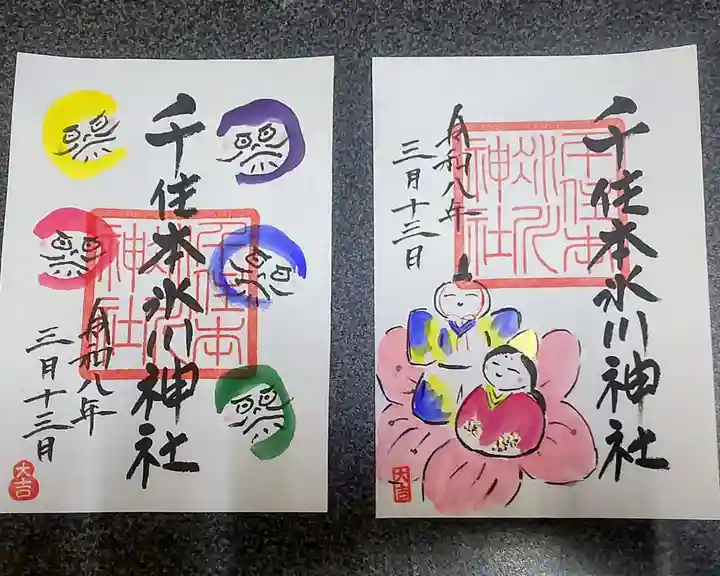 千住本氷川神社
千住本氷川神社
令和八年
三月十三日
大吉
千住本氷川神社
千住本氷川神社
令和八年
三月十三日
大吉